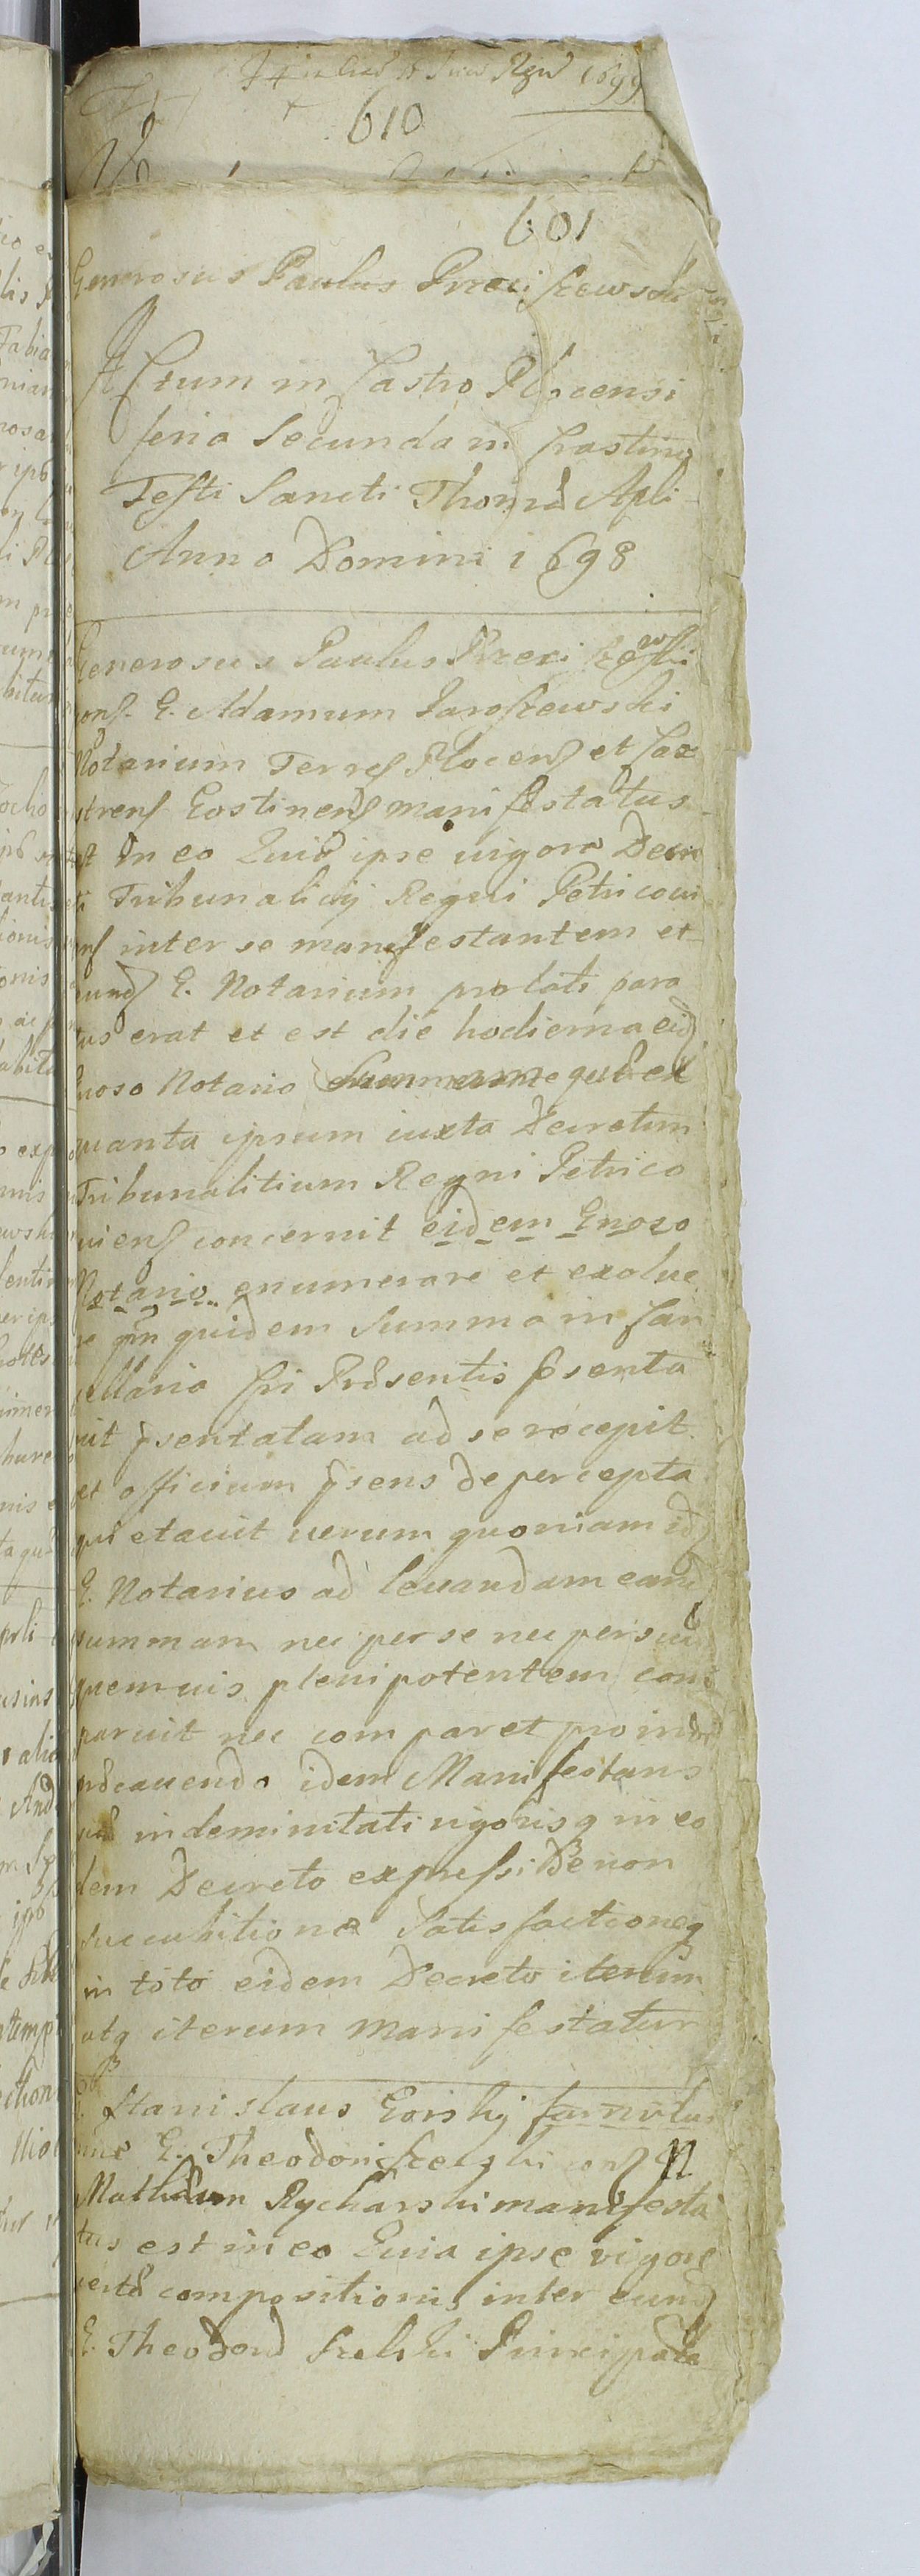 1699
610
601
Generosus Paulus Przeci szewski
Actum in Castro Plocensi
feria Secunda in Crastino
Festi Sancti Thomæ Apli
Anno Domini 1698
Generosus Paulus Przeci szewski
cons. G. Adamum Jaroszewski
Notarium Terres Plocens et Cas
strens Gostinens manifestatus
est in eo Quia ipse uigore Decre
ti Tribunalicij Regni Petricoui
ens inter se manifestantem et
eund G. Notarium prolati para
tus erat et est die hodierna eid
Gnoso Notario Summam
quanta ipsum iuxta Decretum
Tribunalitium Regni Petrico
uiens concernit eidem Gnoso
Notario enumerare et exolue
re qm quidem Summa in Can
cellaria Cri Præsentis psenta
uit psentatam ad se recepit
et officium psens de percepta
quietauit uerum quoniam id
G. Notarius ad leuandam eand
summam nec per se nec per suū
quemuis plenipotentem com
paruit nec comparet proinde
præcauendo idem Manifestans
suæ indemnitati uigorisq in eo
dem Decreto expressi De non
succubitione Satisfactioneq
in toto eidem Decreto iterum
atq iterum manifestatur
G. Stanislaus Gorskij famulus
G. Theodori Szelski cons N
Mathæum Rycharski manifesta
tus est in eo Quia ipse vigore
certæ compositionis inter eund
G. Theodorū Szelski Principale